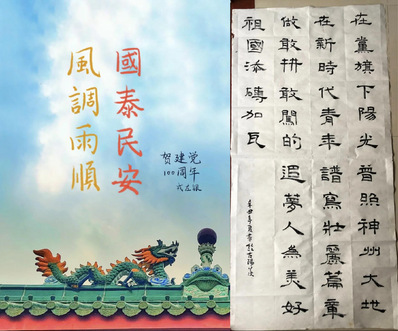 國泰民安
風調雨順
贺建党
100周年
在黨旗下陽光普照神州大地
在新時代青年譜寫壯麗篇章
做敢拼敢闖的追夢人為美好
祖國添磚加瓦